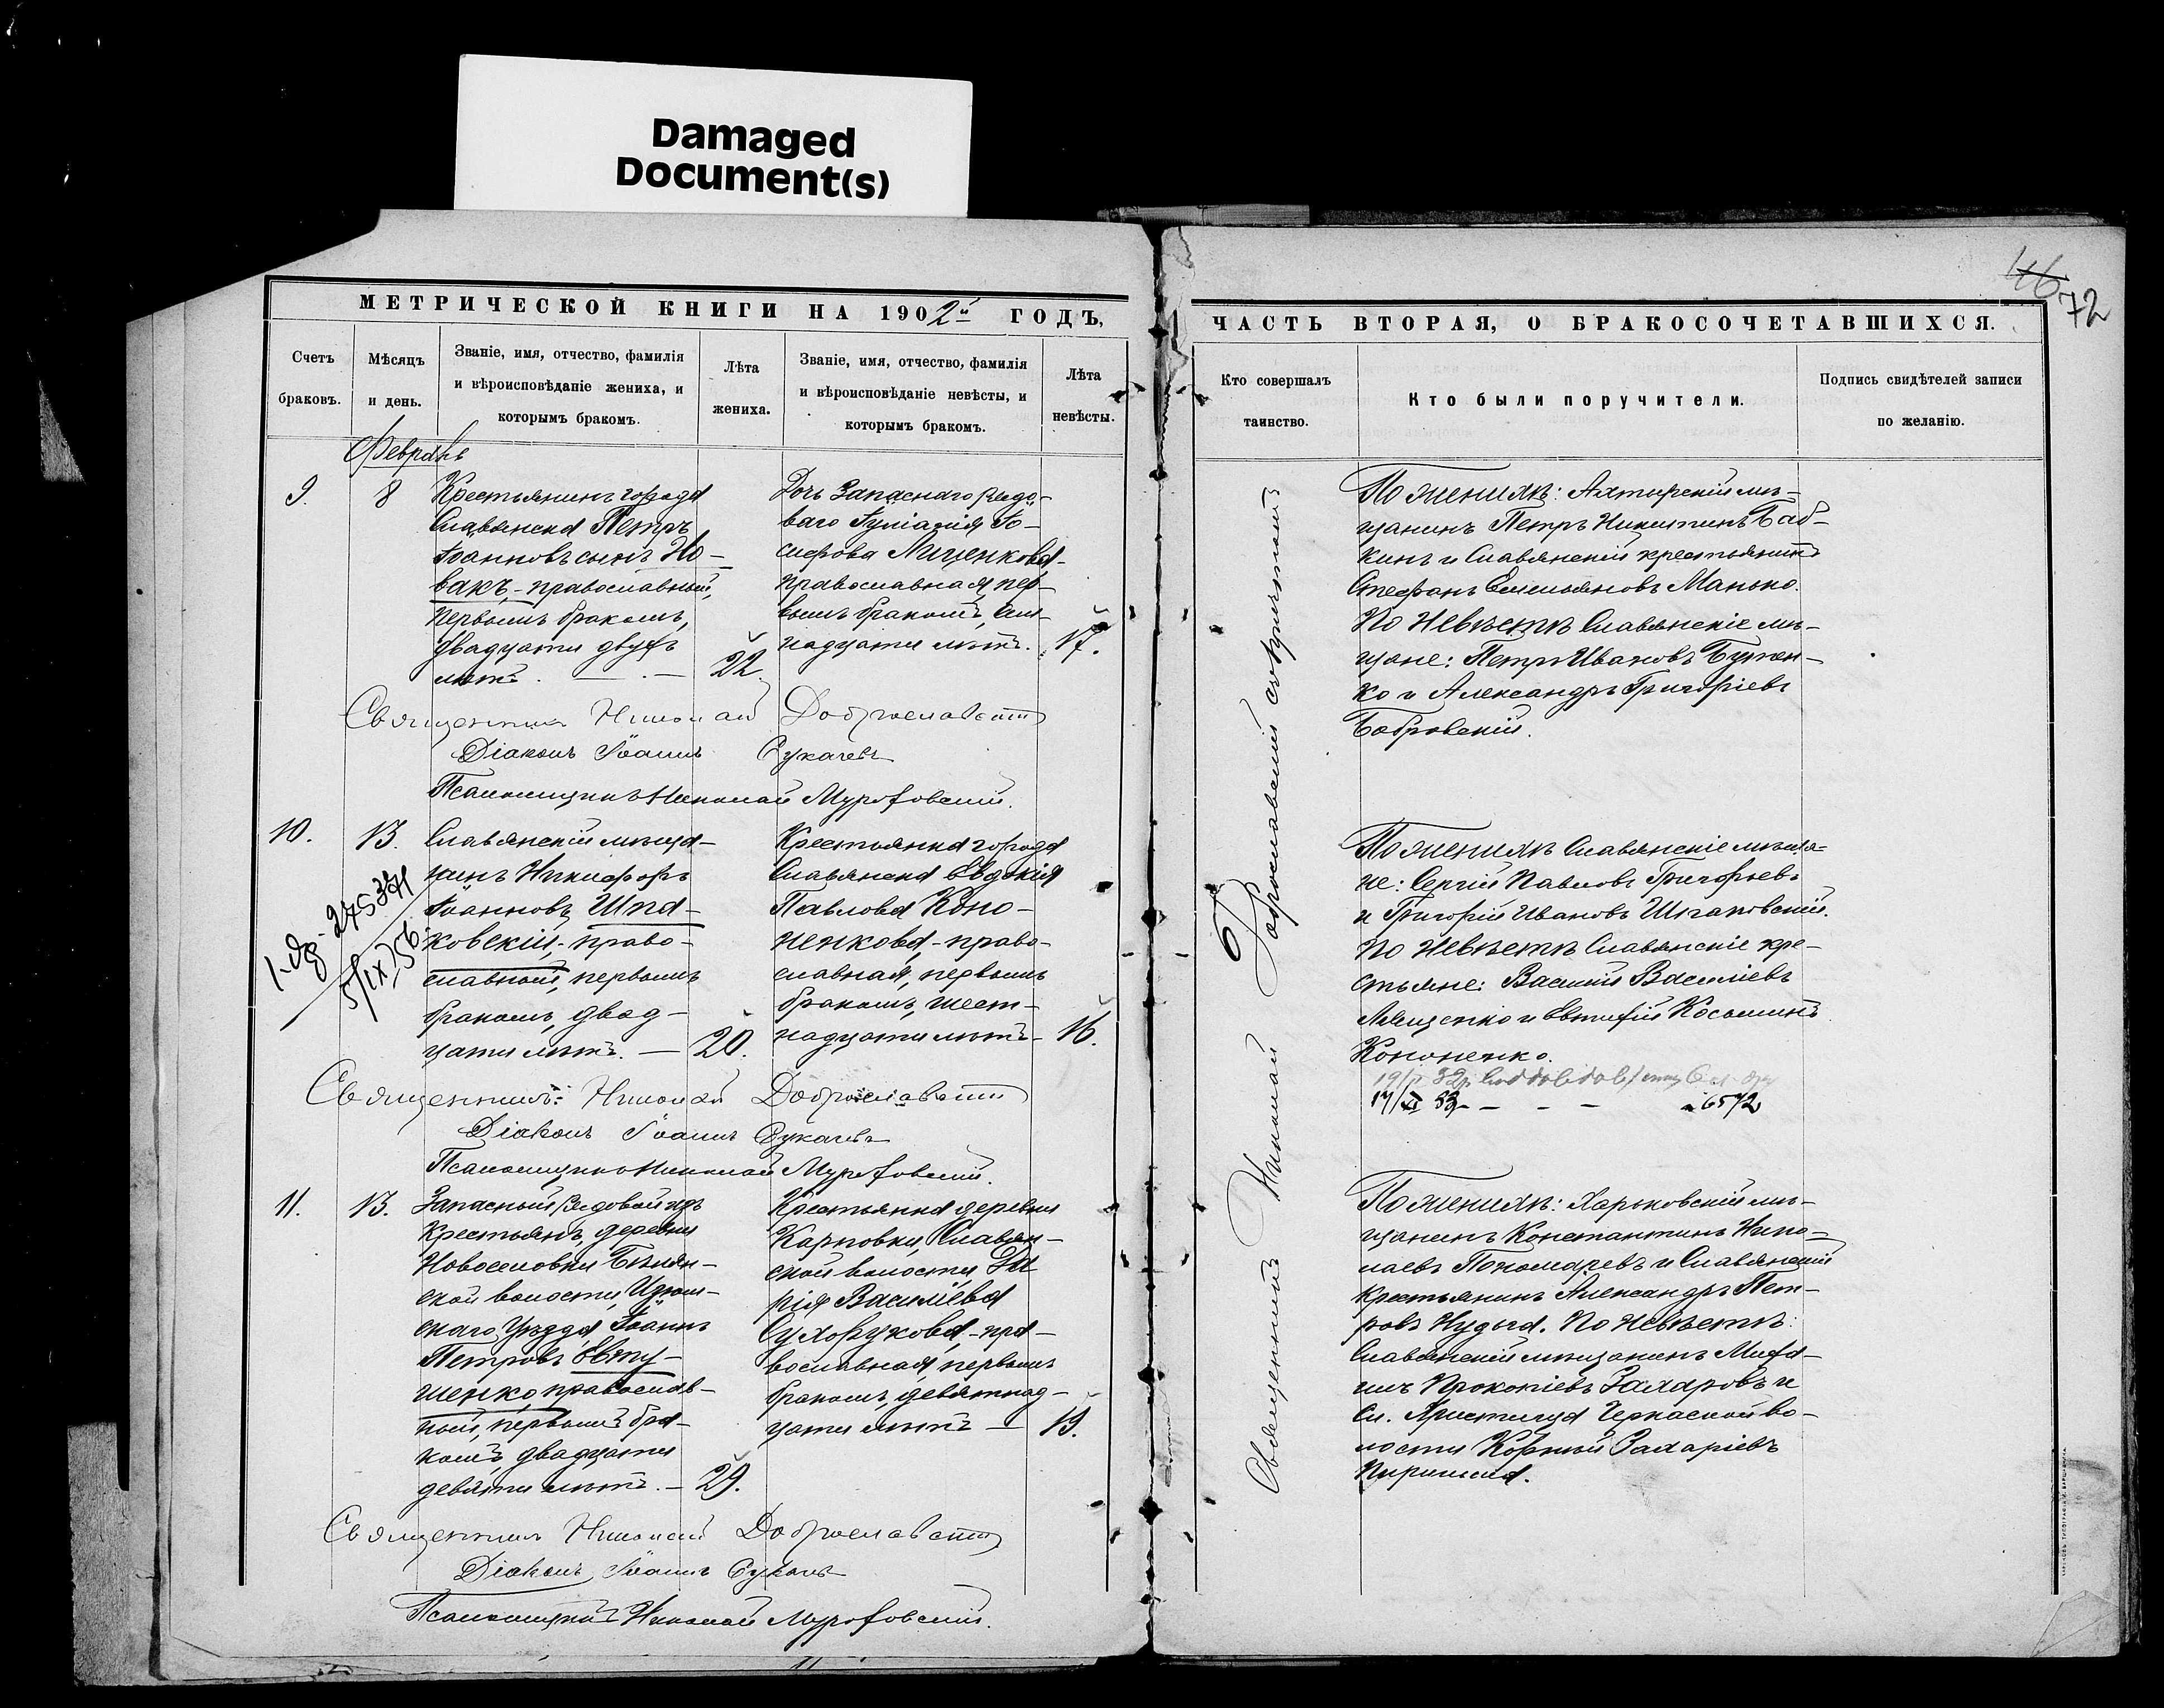 Damaged
Document(s)
МЕТРИЧЕСКОЙ КНИГИ НА 1902й ГОДЪ,
Счетъ браковъ.
Мѣсяцъ и день.
Званіе, имя, отчество, фамилія
и вѣроисповѣданіе жениха, и
которымъ бракомъ.
Лѣта жениха.
Званіе, имя, отчество, фамилія
и вѣроисповѣданіе невѣсты, и
которымъ бракомъ.
Лѣта невѣсты.
Февраль
9.
8
Крестьянинъ города
Славянска Петръ
Іоанновъ сынъ Но-
вакъ, - православный,
первымъ бракомъ,
двадцати двухъ
лѣтъ. — . —
22.
Дочь Запаснаго Рядо-
ваго Іо-
сифова Лиценкова-
православная, пер-
вымъ бракомъ, сем-
надцати лѣтъ.
17.
Священникъ Николай Доброславскій
Діаконъ Іоаннъ Рукачевъ
Псаломщикъ Николай
10.
13.
Славянскій мѣща-
нинъ Никифоръ
Іоанновъ Шпа-
ковскій, - право-
славный, первымъ
бракомъ, двад-
цати лѣтъ. —
20.
Крестьянка города
Славянска Евдокія
Павлова Коно-
ненкова, - право-
славная, первымъ
бракомъ, шест-
надцати лѣтъ -
16.
5/IX 56.
Священникъ: Николай Доброславскій
Діаконъ Іоаннъ Рукачевъ
Псаломщикъ Николай
11.
13.
Запасный Рядовой изъ
Крестьянъ, деревни
Новоселовки
ской волости, Изюм-
скаго Уѣзда, Іоаннъ
Петровъ Евту-
шенко, православ-
ный, первымъ бра-
комъ, двадцати
девяти лѣтъ. —
29.
Крестьянка деревни
Карповки, Славян-
ской волости Да
рія Василіева
Сухорукова, - пра-
вославная, первымъ
бракомъ, девятнад-
цати лѣтъ —
19.
Священникъ Николай Доброславскій
Діаконъ Іоаннъ Рукачевъ
Псаломщикъ Николай
46
72
ЧАСТЬ ВТОРАЯ, О БРАКОСОЧЕТАВШИХСЯ.
Кто совершалъ таинство.
Кто были поручители.
Подпись свидѣтелей записи
по желанію.
Священникъ Николай Доброславскій
По женихѣ: Ахтырскій мѣ-
щанинъ Петръ Никитинъ Баб-
кинъ и Славянскій крестьянинъ
Стефанъ Емельяновъ Манько.
По Невѣстѣ Славянскіе мѣ-
щане: Петръ Ивановъ
ко и Александръ Григоріевъ
Бобровскій.
По женихѣ Славянскіе мѣща-
не: Сергій Павловъ Григорьевъ
и Григорій Ивановъ Шпаковскій.
По Невѣстѣ Славянскіе кре-
стьяне: Василій Василіевъ
Лященко и Евтихій Косьминъ
Кононенко.
17/XI 33 - - - - 6572
По женихѣ: Харьковскій мѣ-
щанинъ Константинъ Нико-
лаевъ Пономаревъ и Славянскій
крестьянинъ Александръ Пет-
ровъ По Невѣстѣ:
Славянскій мѣщанинъ Миха-
илъ Прокопіевъ Захаровъ и
Сл. Черкасской во-
лости Корнилій Захаріевъ